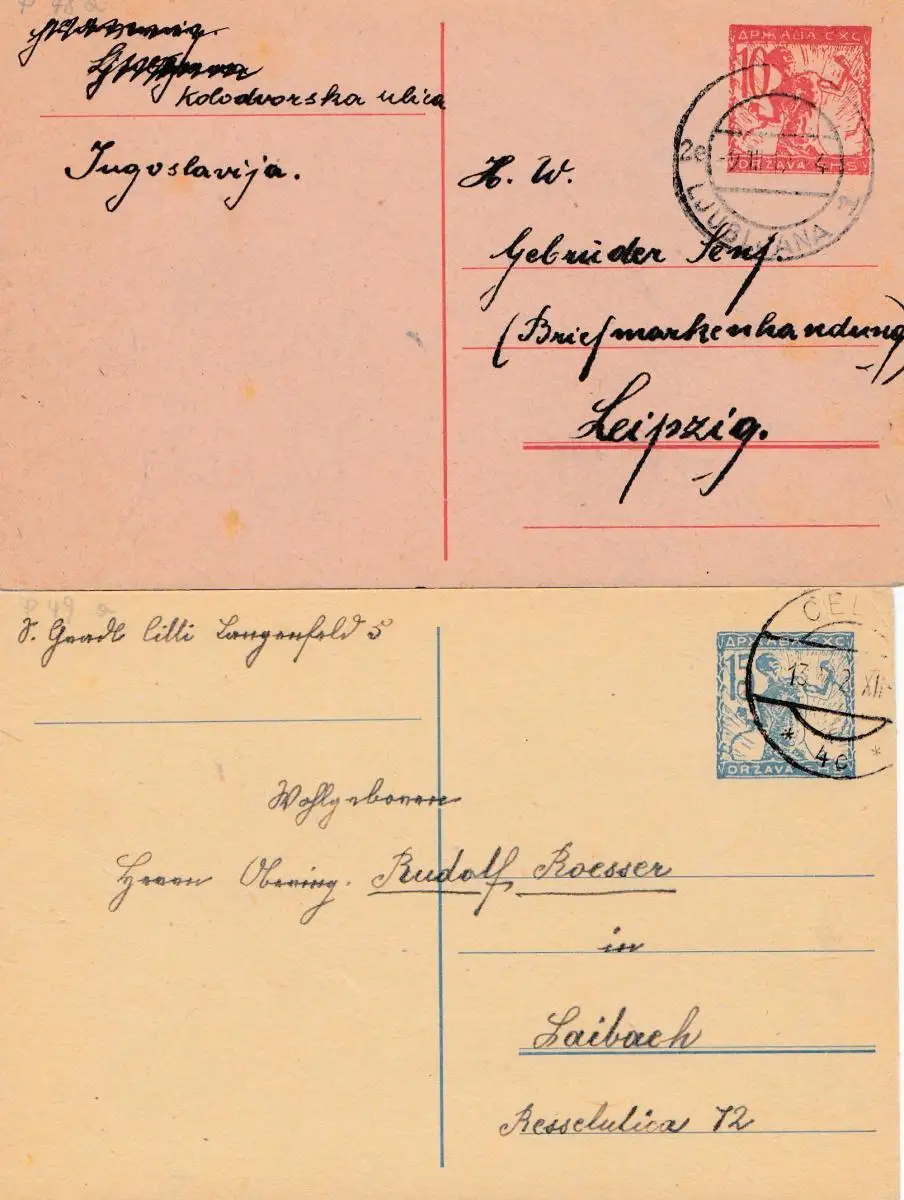 P 48 a
Kolodvorska ulica
Jugoslavija.
ДРЖАВА СХС
10
DRZAVA SHS
2e LJUBLJANA 1
H. W.
Gebrüder Senf.
(Briefmarkenhandung)
Leipzig.
P 49 a
S. Gradl Cilli Langenfeld 5
ДРЖАВА СХС
15
DRZAVA SHS
CEL
13
XII
* 4c *
Wohlgeboren
Herrn Obering. Rudolf Roesser
in
Laibach
Resselulica 12